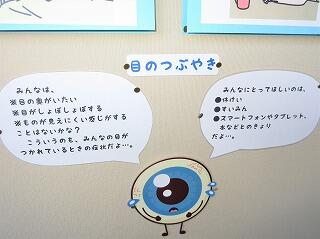 目のつぶやき
みんなは、
※目の奥がいたい
※目がしょぼしょぼする
※ものが見えにくい感じがする
ことはないかな？
こういうのも、みんなの目が
つかれているときの症状だよ…。
みんなにとってほしいのは、
●休けい
●すいみん
●スマートフォンやタブレット、
本などとのきょり
だよ…。